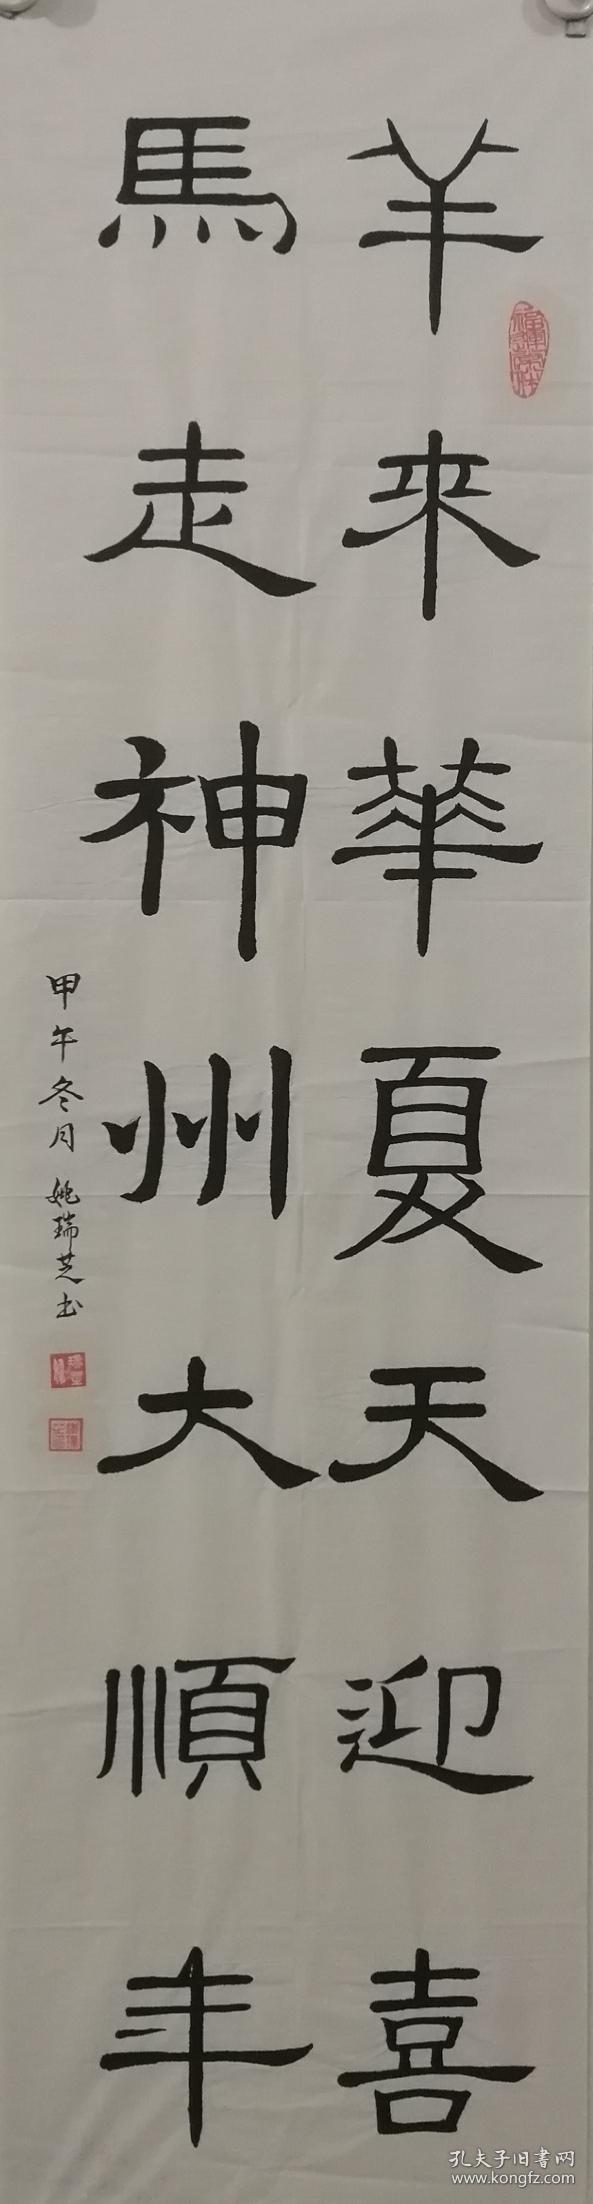 羊来華夏天迎喜
馬走神州大順年
甲午冬月姚瑞芝书
孔夫子旧書网
www.kongfz.com